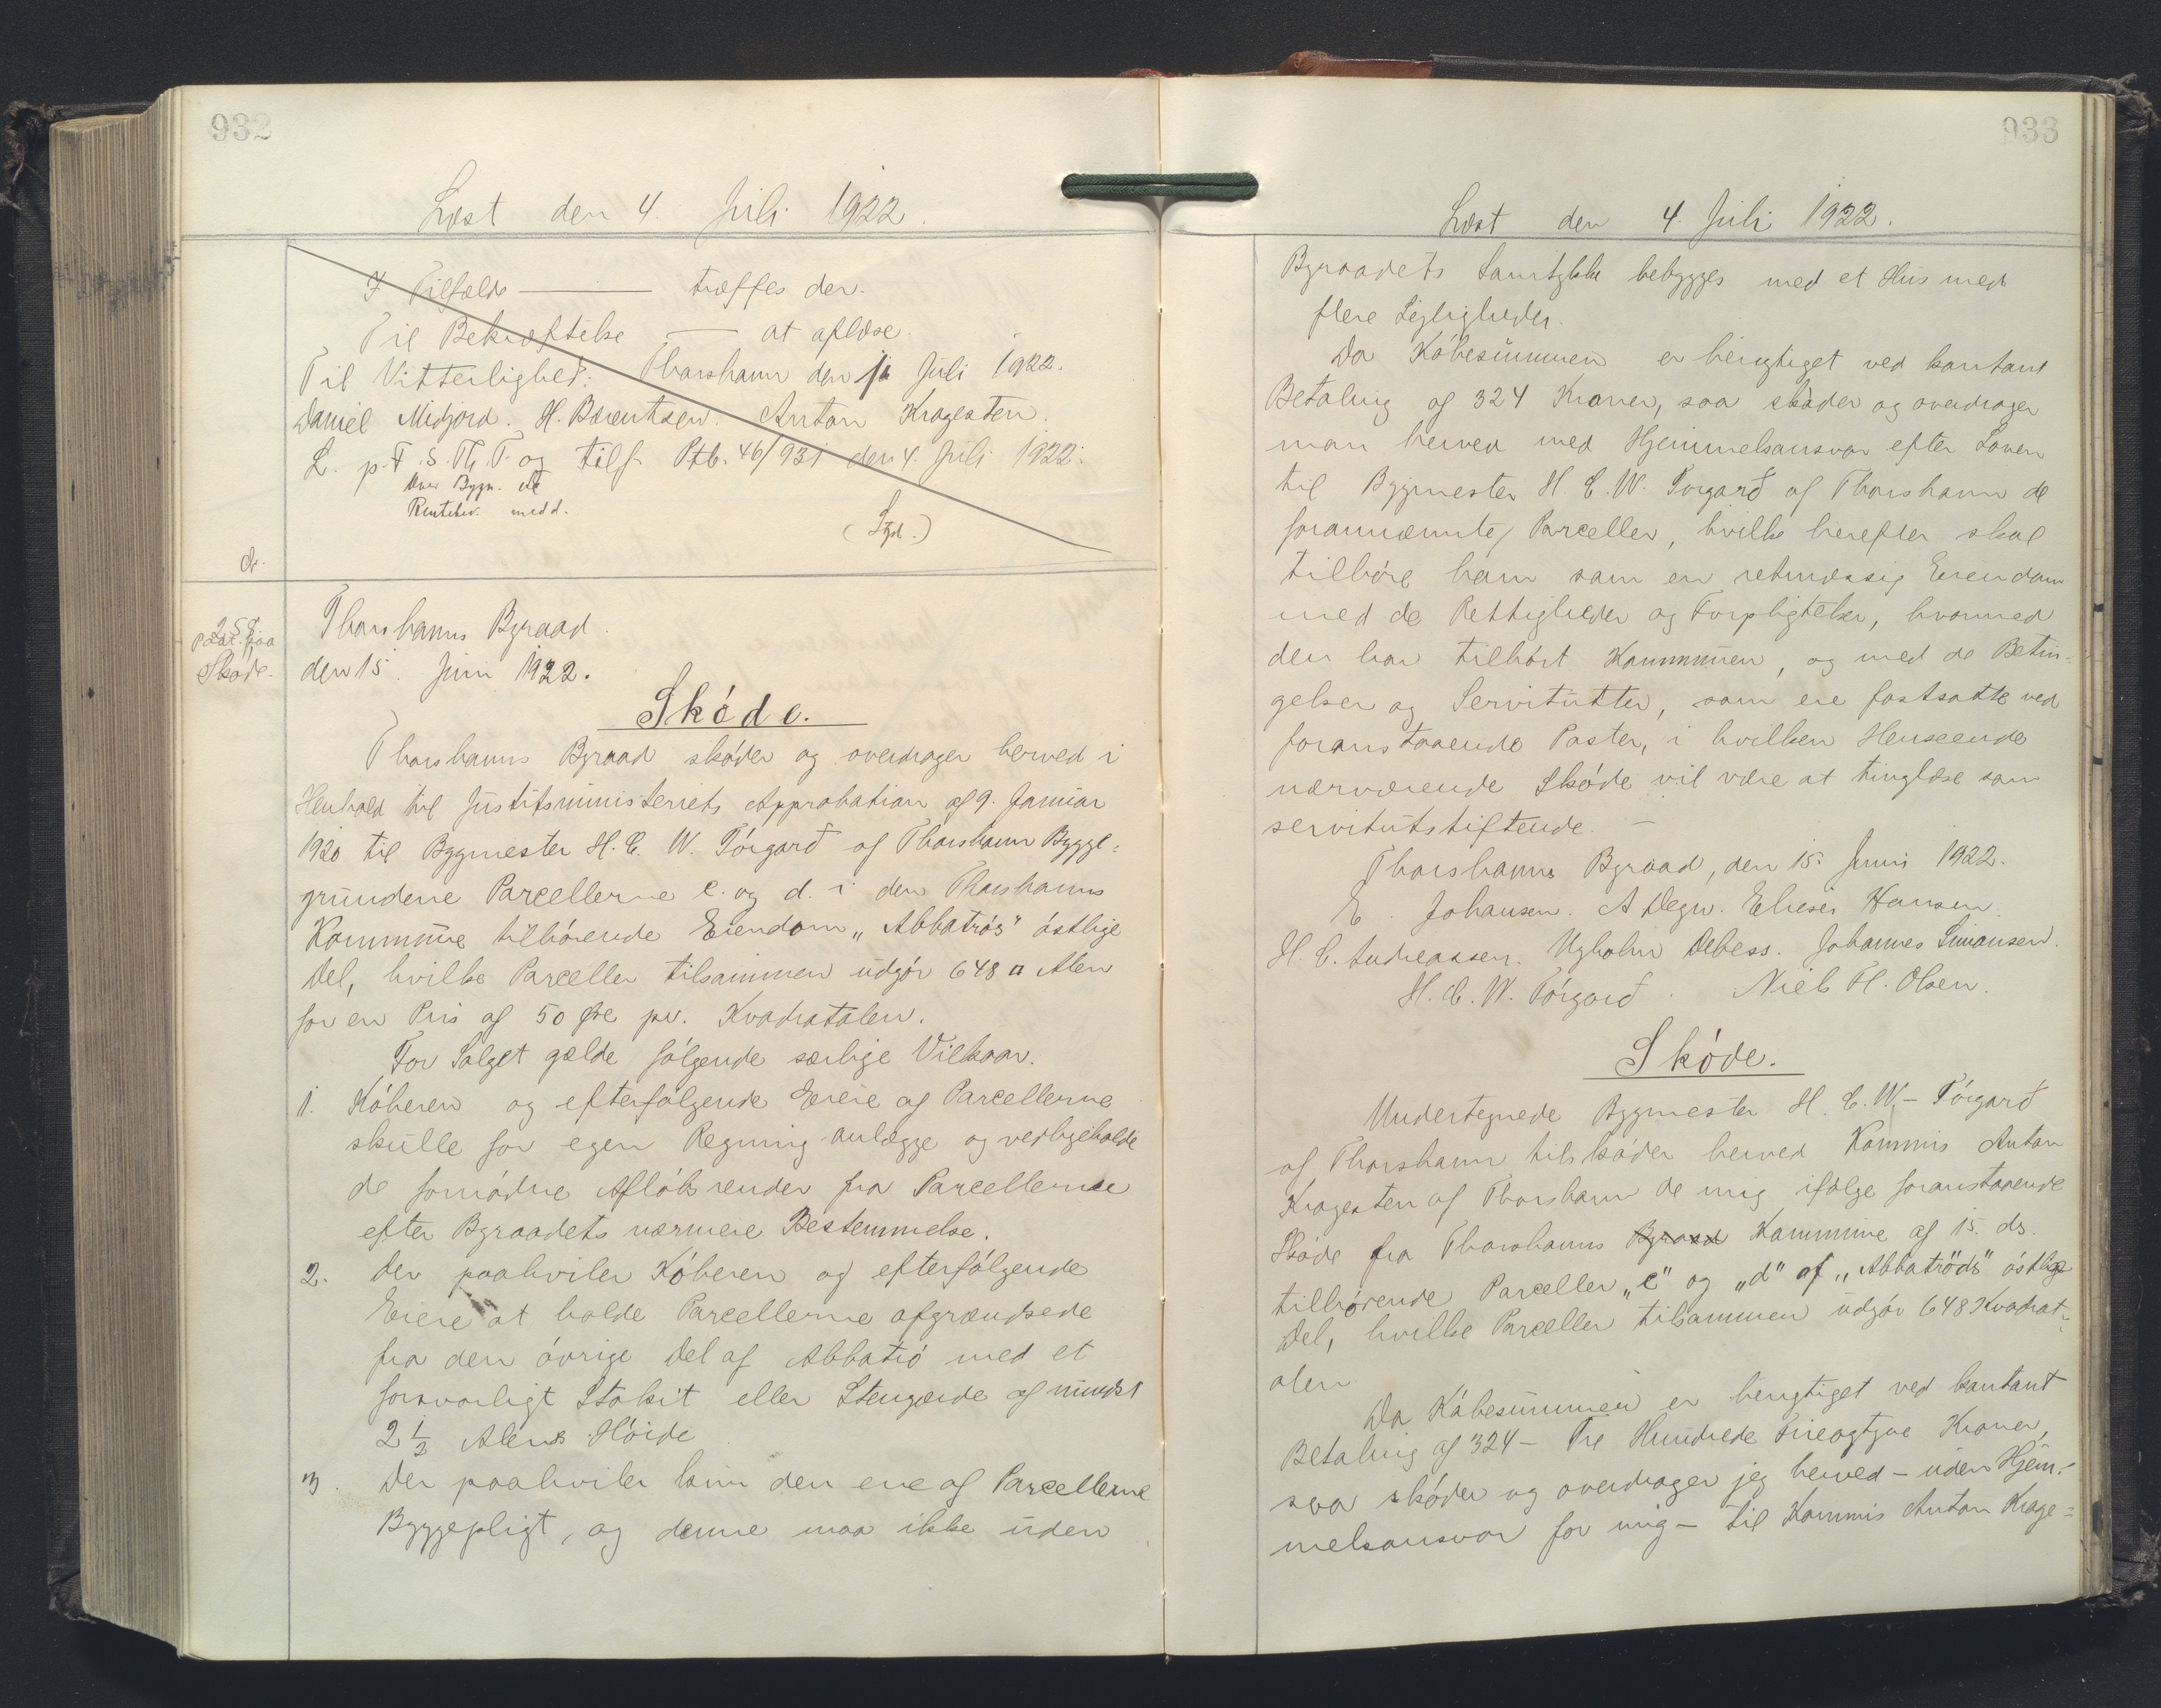 932
Læst den 4. Juli 1922.
I Tilfælde — træffes der.
Til Bekræftelse — at aflæse.
Til Vitterlighed: Thorshavn den 1 Juli 1922.
Daniel Midjord. H. Bærentsen. Anton Kragesten.
L. p. F. S. Th. T. og tilf. Ptb. 46/931 den 4. Juli 1922.
Over Bygn. ell
Rentebev. medd.
(Lysd.)
258
paa
Skøde.
Thorshavns Byraad.
den 15. Juni 1922.
Skóde.
Thorshavns Byraad skóder og overdrager herved i
Henhold til Justitsministeriets Approbation af 9. Januar
1920 til Bygmester H. C. W. Tórgarð af Thorshavn Bygge=
grundene Parcellerne c. og d. i den Thorshavns
Kommune tilhórende Eiendom „Abbatrós" óstlige
Del, hvilke Parceller tilsammen udgór 648 □ Alen
for en Pris af 50 Øre pr. Kvadratalen.
For Salget gælde fólgende særlige Vilkaar.
1. Kóberen og efterfólgende Eiere af Parcellerne
skulle for egen Regning anlægge og vedligeholde
de fornódne Aflóbsrender fra Parcellerne
efter Byraadets nærmere Bestemmelse.
2. Der paahviler Kóberen og efterfólgende
Eiere at holde Parcellerne afgrændsede
fra den óvrige Del af Abbatró med et
forsvarligt Stakit eller Stengærde af mindst
2 1/2 Alens Hóide
3. Der paahviler kun den ene af Parcellerne
Byggepligt, og denne maa ikke uden
933
Læst den 4. Juli 1922.
Byraadets Samtykke bebygges med et Hus med
flere Leiligheder.
Da Kóbesummen er berigtiget ved kontant
Betaling af 324 Kroner, saa skóder og overdrager
man herved med Hjemmelsansvar efter Loven
til Bygmester H. C. W. Torgarð af Thorshavn de
forannævnte Parceller, hvilke herefter skal
tilhøre ham som en retmæssig Eiendom
med de Rettigheder og Forpligtelser, hvormed
den har tilhórt Kommunen, og med de Betin=
gelser og Servitutter, som ere fastsatte ved
foranstaaende Poster, i hvilken Henseende
nærværende Skóde vil være at tinglæse som
servitutstiftende. –
Thorshavns Byraad, den 15. Juni 1922.
E. Johansen. A Degn. Elieser Hansen.
H. C. Andreassen. Ugholm Debess. Johannes Simonsen.
H. C. W. Tórgarð. Niels H. Olsen.
Skóde.
Undertegnede Bygmester H. C. W. Tórgarð
af Thorshavn tilskóder herved Kommis Anton
Kragesten af Thorshavn de mig ifólge foranstaaende
Skóde fra Thorshavns Byraad Kommune af 15. ds.
tilhørende Parceller „c" og „d" af „Abbatróðs" óstlige
Del, hvilke Parceller tilsammen udgór 648 Kvadrat=
alen.
Da Kóbesummen er berigtiget ved kontant
Betaling af 324 – Tre Hundrede Fireogtyve Kroner,
saa skóder og overdrager jeg herved – uden Hjem=
melsansvar for mig – til Kommis Anton Krage=